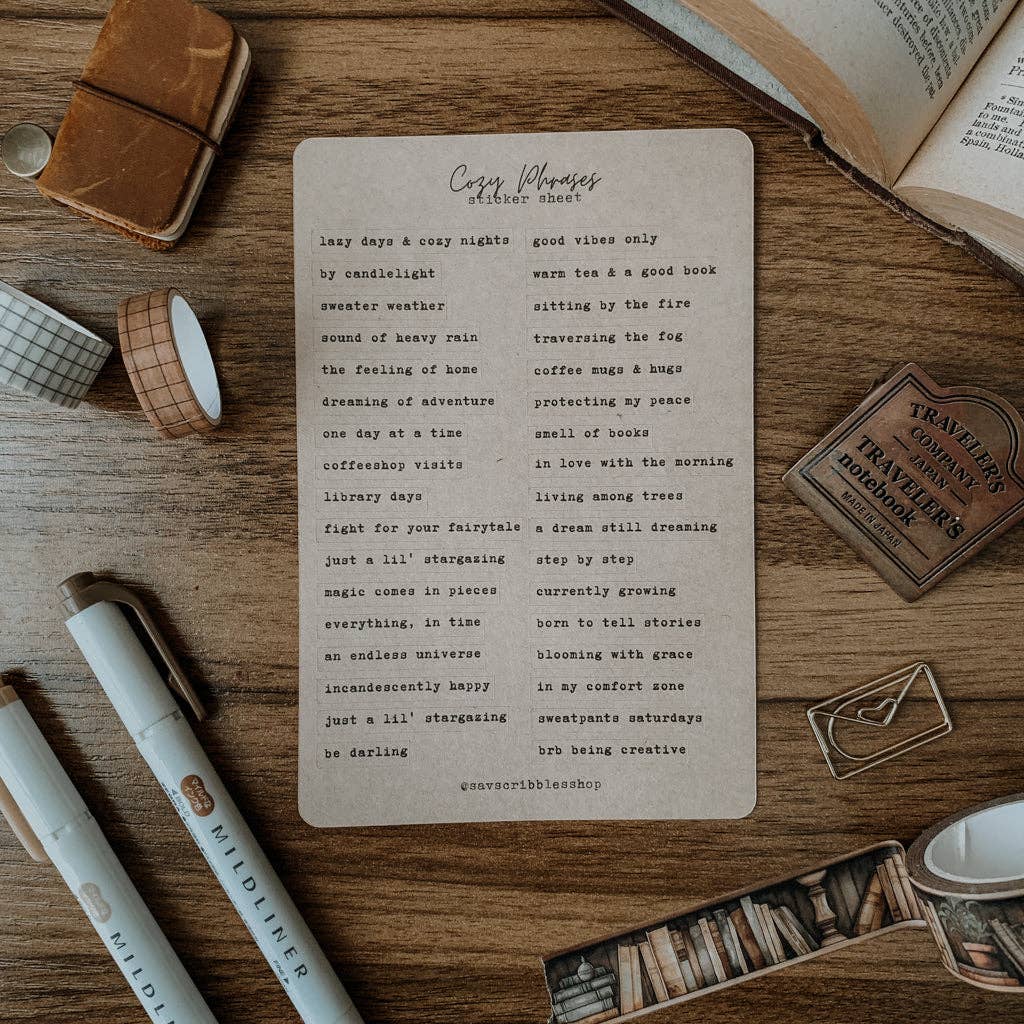 Cozy Phrases
sticker sheet
lazy days & cozy nights
by candlelight
sweater weather
sound of heavy rain
the feeling of home
dreaming of adventure
one day at a time
coffeeshop visits
library days
fight for your fairytale
just a lil' stargazing
magic comes in pieces
everything, in time
an endless universe
incandescently happy
just a lil' stargazing
be darling
good vibes only
warm tea & a good book
sitting by the fire
traversing the fog
coffee mugs & hugs
protecting my peace
smell of books
in love with the morning
living among trees
a dream still dreaming
step by step
currently growing
born to tell stories
blooming with grace
in my comfort zone
sweatpants saturdays
brb being creative
@savscribblesshop
TRAVELER'S
COMPANY
JAPAN
TRAVELER'S
notebook
MADE IN JAPAN
BOLD
MILDLINER
FINE
MILDL
of discontent
centuries before, been
destroyed the
to me.
lands and
a combinat
Spain, Holla